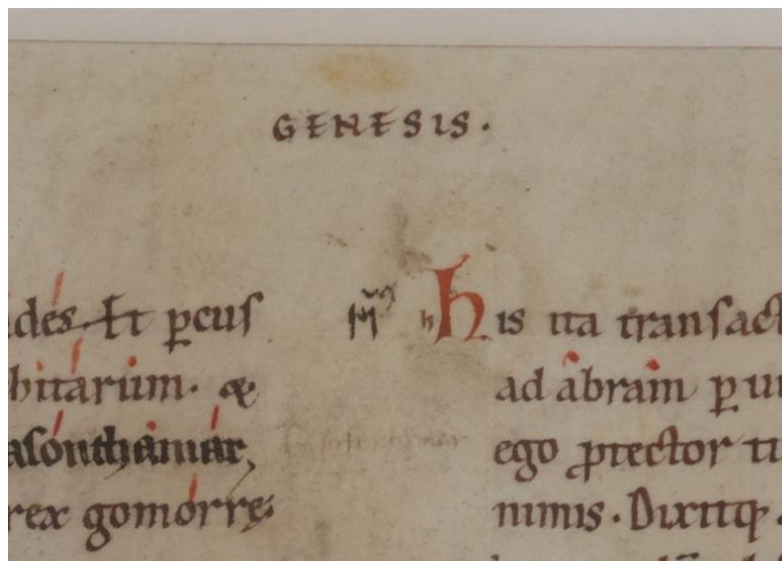 GENESIS.
des Et ꝑcus
bitarum. &
asonthamar,
rex gomorrę
his ita transact
ad abram ꝑ ui
ego ꝓtector ti
nimis. Dixitqꝫ